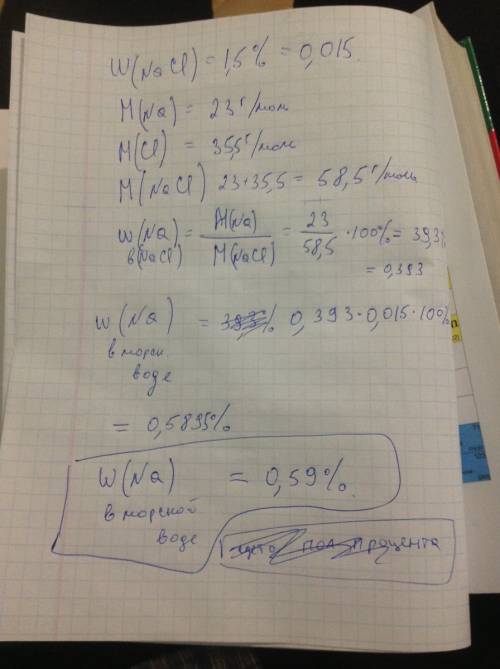 W(NaCl) = 1,5% = 0,015.
M(Na) = 23 г/моль
M(Cl) = 35,5 г/моль
M(NaCl) 23+35,5 = 58,5 г/моль
W(Na) в(NaCl) = M(Na) / M(NaCl) = 23 / 58,5 · 100% = 39,3%
= 0,393
W(Na) = 39,3% 0,393 · 0,015 · 100%
в морск.
воде
= 0,5895%
W(Na) = 0,59%.
в морской
воде
пол процента